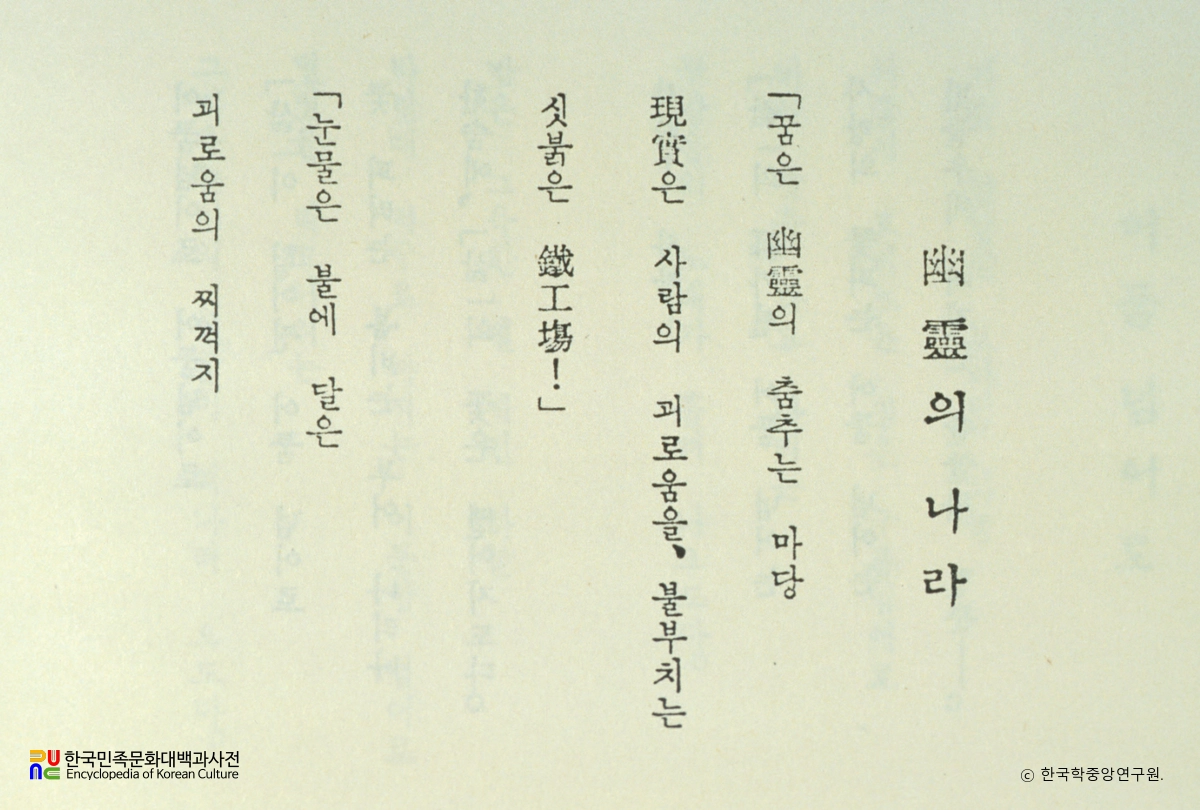 幽靈의나라
「꿈은 幽靈의 춤추는 마당
現實은 사람의 괴로움을、 불부치는
싯붉은 鐵工場!」
「눈물은 불에 달은
괴로움의 찌꺽지
한국민족문화대백과사전
Encyclopedia of Korean Culture
© 한국학중앙연구원.